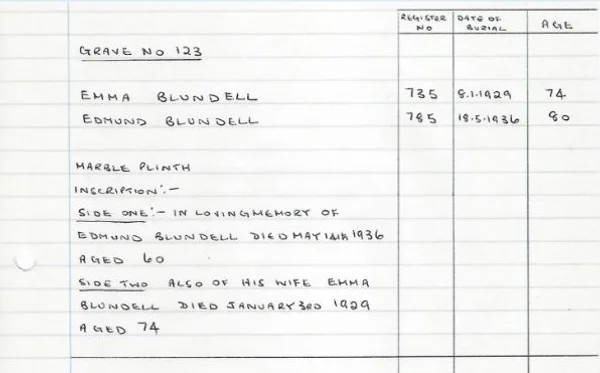 REGISTER NO DATE OF BURIAL AGE
GRAVE NO 123
EMMA BLUNDELL 735 8.1.1929 74
EDMUND BLUNDELL 785 18.5.1936 80
MARBLE PLINTH
INSCRIPTION:-
SIDE ONE:- IN LOVING MEMORY OF
EDMUND BLUNDELL DIED MAY 14th 1936
AGED 60
SIDE TWO ALSO OF HIS WIFE EMMA
BLUNDELL DIED JANUARY 3RD 1929
AGED 74